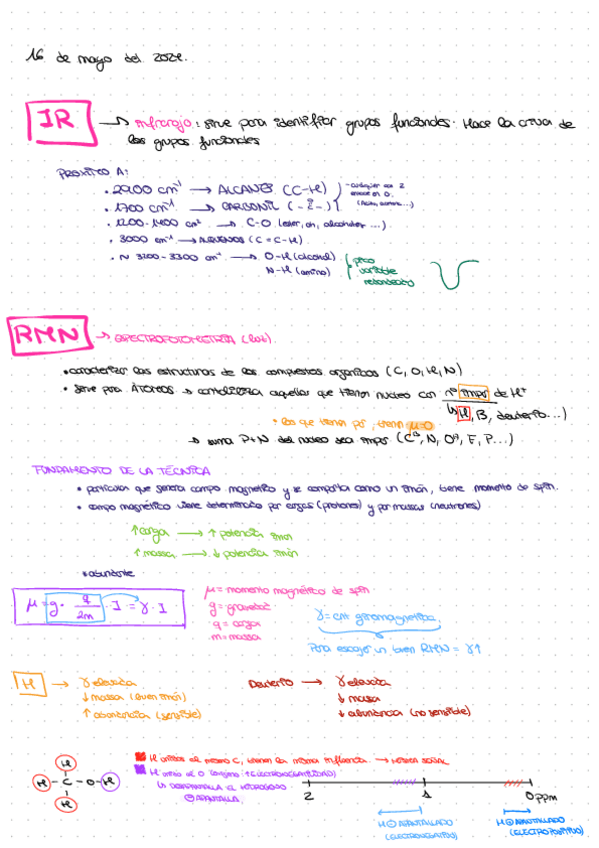 16 de mayo del 2024.
IR → infrarojo: sirve para identificar grupos funcionales: Hace la criva de
los grupos funcionales
PROXIMO A:
• 2900 cm⁻¹ → ALCANES (C-H)
• 1700 cm⁻¹ → CARBONIL
• 1200-1400 cm⁻¹ → C-O (ester, oh, alcoholes ...)
• 3000 cm⁻¹ → ALQUENOS (C=C-H)
• ~ 3200-3300 cm⁻¹ → O-H (alcohol)
N-H (amino)
pico
variable
redondeado
RMN → ESPECTROFOTOMETRIA (luz)
• caracterizar las estructuras de los compuestos organicos (C, O, H, N)
• Sirve para ÁTOMOS → contabiliza aquellos que tienen nucleo con nº impar de H⁺
↳ H, B, deuterio...)
• los que tienen par, tienen μ=0
→ suma P+N del nucleo sea impar (C¹³, N, O¹⁷, F, P...)
FUNDAMENTO DE LA TÉCNICA
• particulas que genera campo magnético y se comporta como un imán, tiene momento de spin.
• campo magnético viene determinado por cargas (protones) y por massas (neutrones)
↑ carga → ↑ potencia iman
↑ massa → ↓ potencia imán
• abundante
μ = g · q/2m · I = γ · I
μ = momento magnético de spin
g = gravedad
q = carga
m = massa
γ = cnt giromagnetica
Para escoger un buen RMN = γ↑
H → γ elevada
↓ massa (buen imán)
↑ abundancia (sensible)
Deuterio → γ elevada
↓ massa
↓ abundancia (no sensible)
H
H - C - O - H
H
H unidos al mismo C, tienen la misma influencia → misma SEÑAL
H unido al O (oxigeno: ↑ELECTRONEGATIVIDAD)
↳ DESAPANTALLA EL HIDROGENO
APANTALLA
2 1 0 ppm
H APANTALLADO
(ELECTRONEGATIVO)
H APANTALLADO
(ELECTROPOSITIVO)